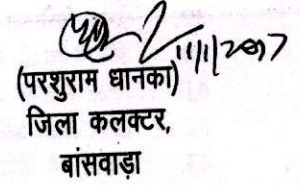 11/1/2007
(परशुराम धानका)
जिला कलक्टर,
बांसवाड़ा